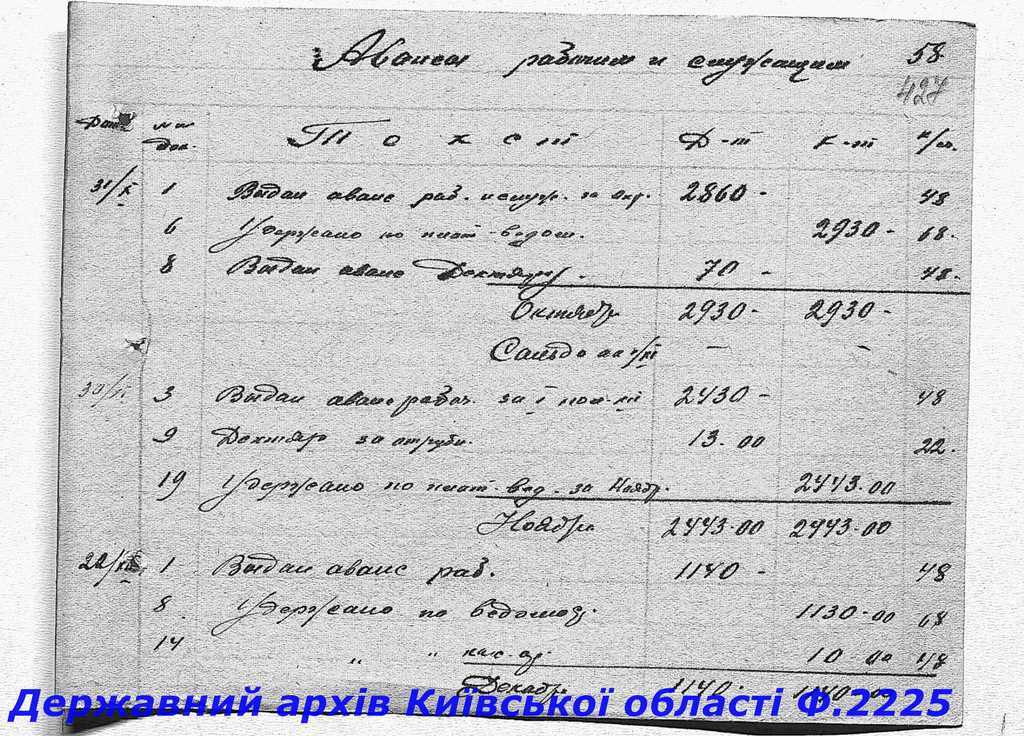 Авансы рабочим и служащим 58
427
Дата №№ док. Текст Д-т К-т н/сч.
31/X 1 Выдан аванс раб. и служ. за окт. 2860 - 48
6 Удержано по плат. ведом. 2930 - 68.
8 Выдан аванс Дехтяру. 70 - 48.
Октябрь 2930 - 2930 -
Сальдо на 1/XI - -
30/XI 3 Выдан аванс рабоч. за I пол. 2430 - 48
9 Дехтяр за отруби. 13.00 22.
19 Удержано по плат. вед. за Ноябр. 2443.00
Ноябрь 2443-00 2443-00
22/XII 1 Выдан аванс раб. 1140 - 48
8. Удержано по ведомод. 1130-00 68
14 " " 10-00 48
Декабрь 1140- 1140-00
Державний архів Київської області Ф.2225